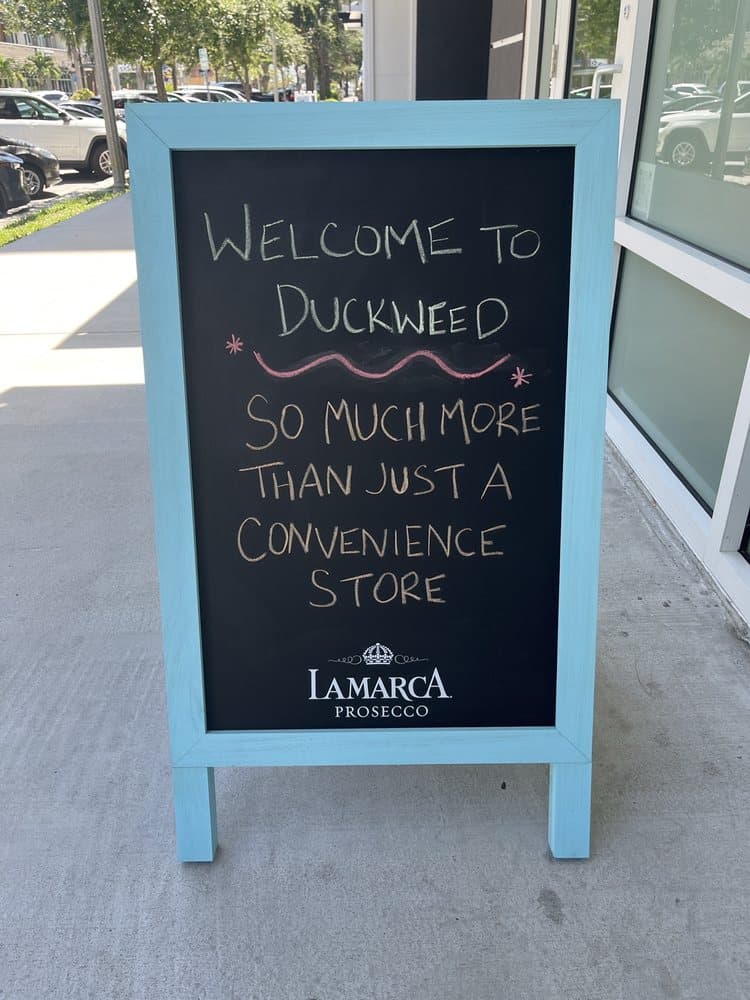 WELCOME TO
DUCKWEED
SO MUCH MORE
THAN JUST A
CONVENIENCE
STORE
LAMARCA
PROSECCO